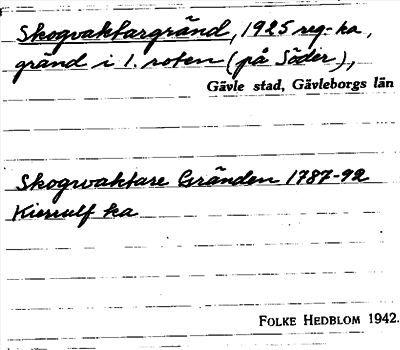 Skogvaktargränd, 1925 reg-ka,
gränd i 1. roten (på Söder),
Gävle stad, Gävleborgs län
Skogwaktare Gränden 1787-92
Kierrulf ka
FOLKE HEDBLOM 1942.